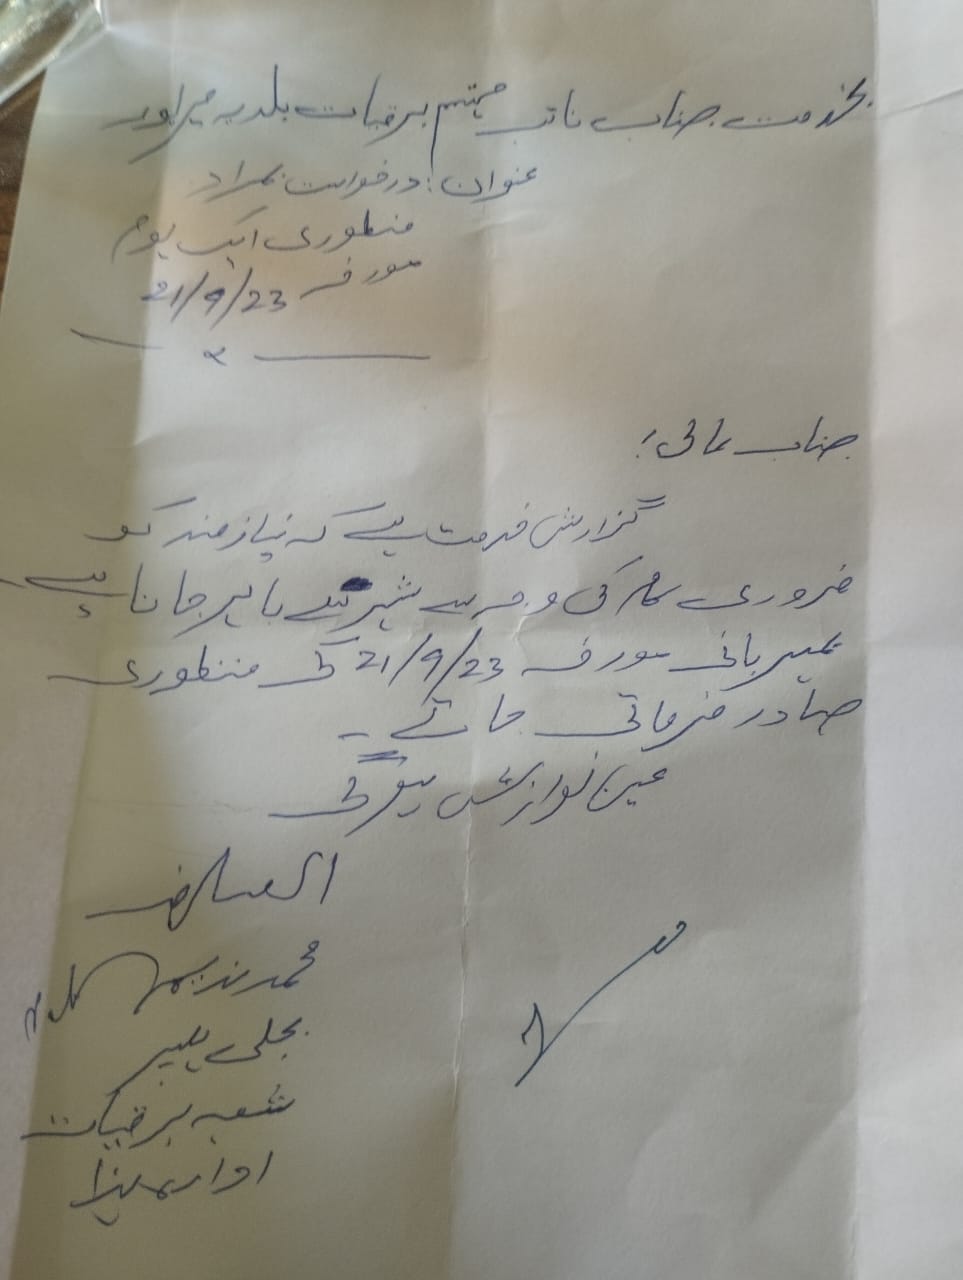 بخدمت جناب نائب مہتمم برقیات بلدیہ میرپور
عنوان: درخواست بمراد
منظوری ایک یوم
مورخہ 21/9/23
جناب عالی!
گزارش خدمت ہے کہ نیازمند کو
ضروری کام کی وجہ سے شہر سے باہر جانا ہے
مہربانی مورخہ 21/9/23 کی منظوری
صادر فرمائی جائے۔
عین نوازش ہوگی
العارض
محمد ندیم
بجلی ہیلپر
شعبہ برقیات
ادارہ ہذا